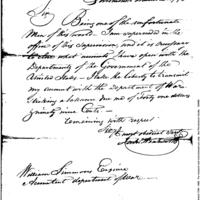 Sir
Being one of the unfortunate
Men of this world. I am superseded in the
office of this Supervision, and it is necessary
to close what accounts I have open with the
Departments of the Government of the
United States – I take the Liberty to transmit
my account with the department of War
Stating a balance due me of forty one dollars
ninety nine Cents –
remaining with respect
Sir
most obedient Servt
William Simmons Esquire
Accountant department of War